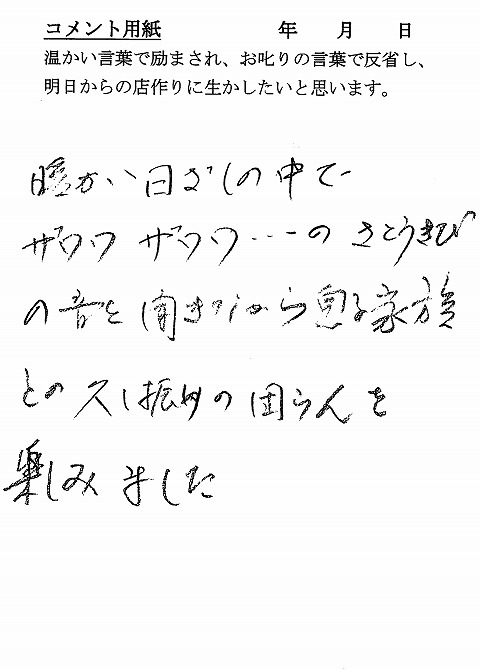 コメント用紙 年 月 日
温かい言葉で励まされ、お叱りの言葉で反省し、
明日からの店作りに生かしたいと思います。
暖かい日ざしの中で
ザワワ ザワワ・・・の さとうきび
の音を聞きながら 家族
との久し振りの団らんを
楽しみました